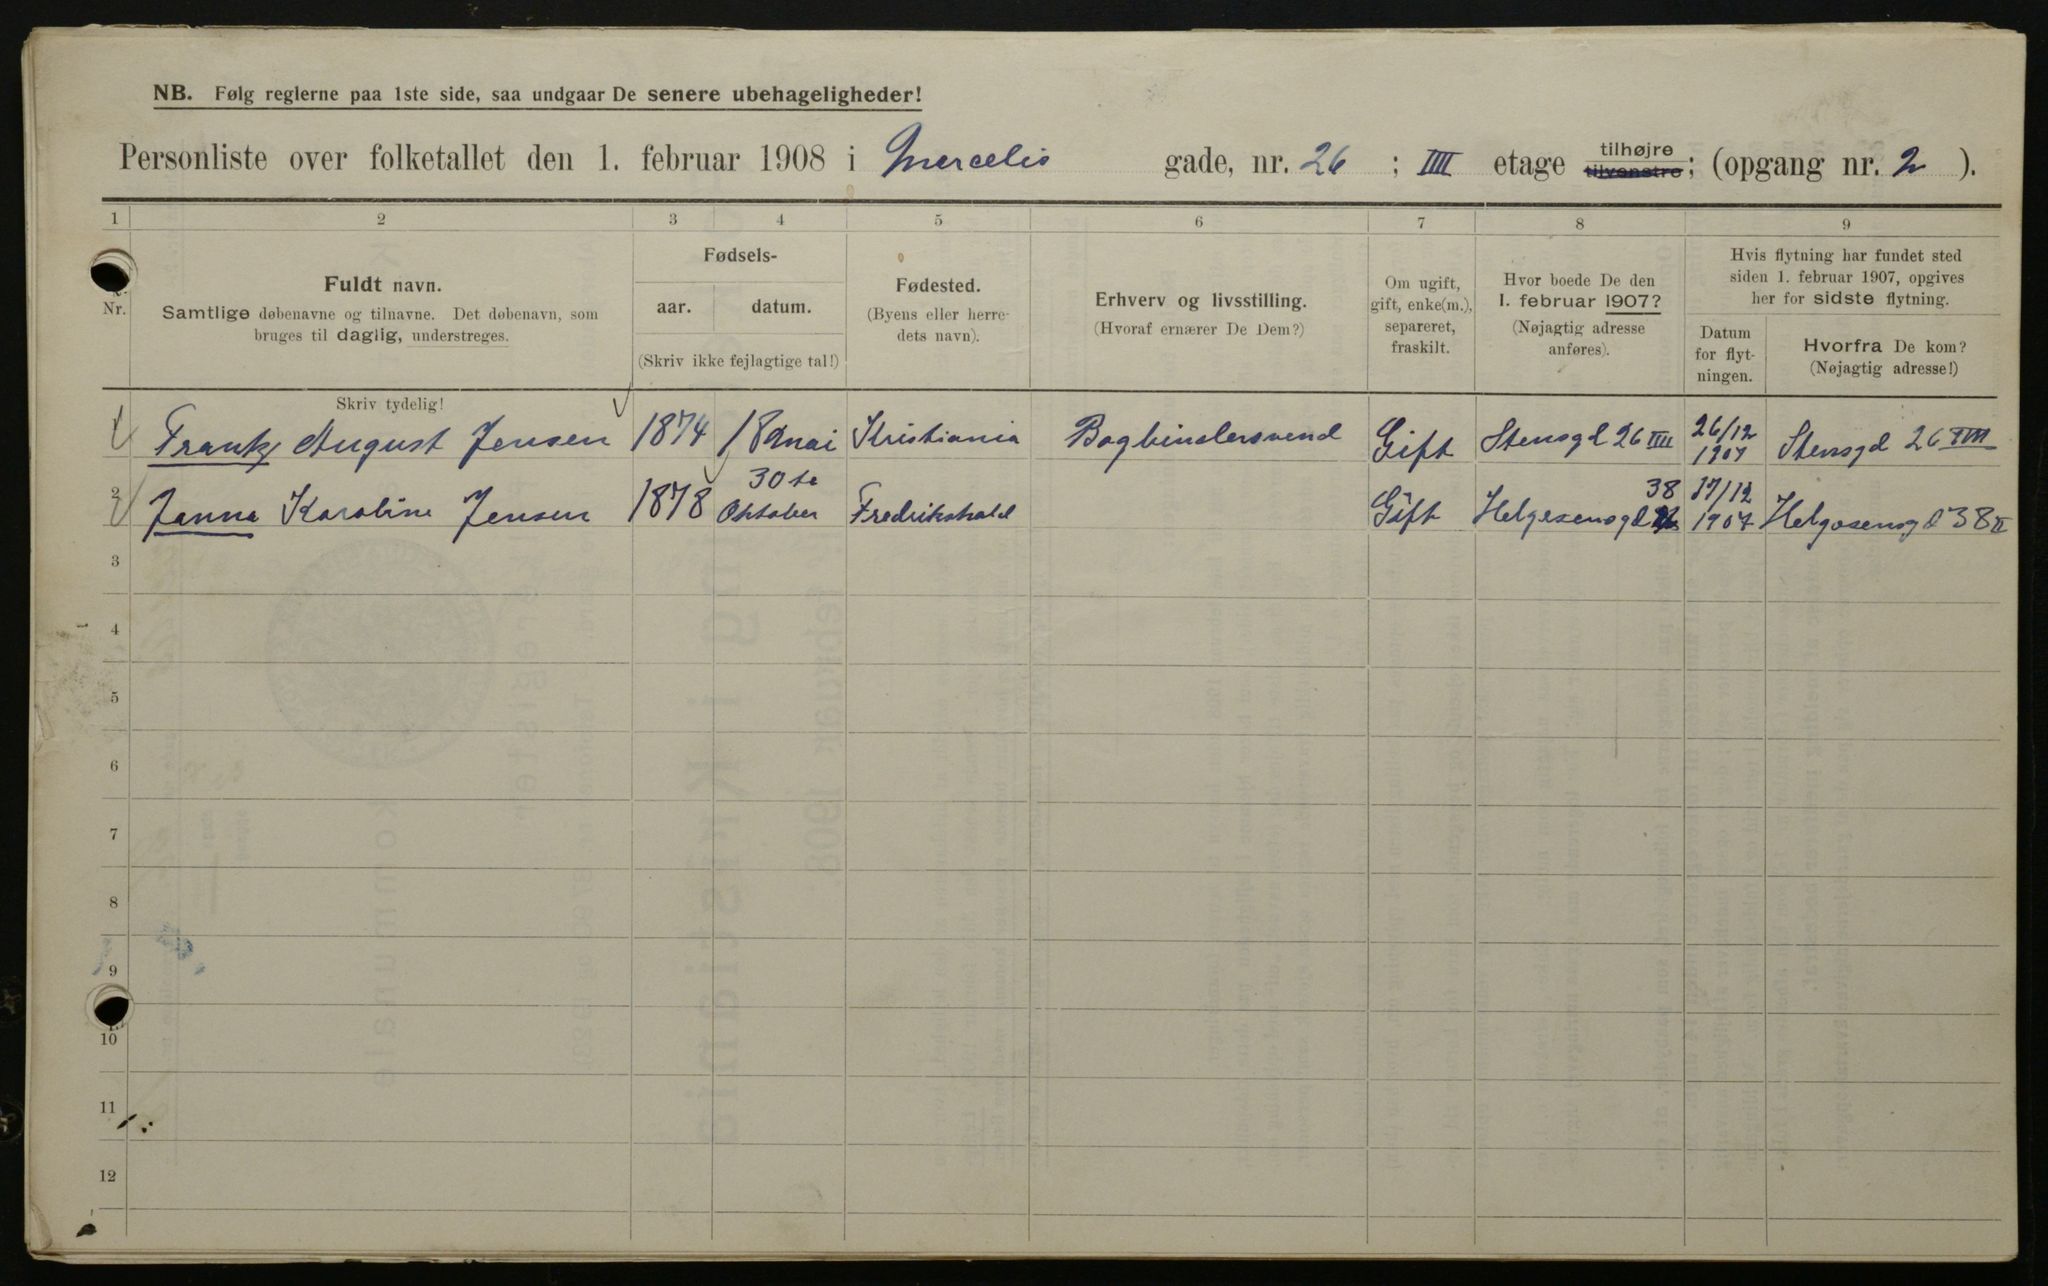 NB. Følg reglerne paa 1ste side, saa undgaar De senere ubehageligheder!
Personliste over folketallet den 1. februar 1908 i Marcelis gade, nr. 26 ; IIII etage tilhøjre tilvenstre; (opgang nr. 2 ).
1 2 3 4 5 6 7 8 9
Nr.
Fuldt navn.
Samtlige døbenavne og tilnavne. Det døbenavn, som
bruges til daglig, understreges.
Fødsels-
aar. datum.
(Skriv ikke fejlagtige tal!)
Fødested.
(Byens eller herre-
dets navn).
Erhverv og livsstilling.
(Hvoraf ernærer De Dem?)
Om ugift,
gift, enke(m.),
separeret,
fraskilt.
Hvor boede De den
1. februar 1907?
(Nøjagtig adresse
anføres).
Hvis flytning har fundet sted
siden 1. februar 1907, opgives
her for sidste flytning.
Datum
for flyt-
ningen.
Hvorfra De kom?
(Nøjagtig adresse!)
Skriv tydelig!
1 Frantz August Jensen 1874 18 mai Kristiania Bogbindersvend Gift Stensgd 26 IIII 26/12 1907 Stensgd 26 IIII
2 Janna Karoline Jensen 1878 30te Oktober Fredrikshald Gift Helgesensgd 38 17/12 1907 Helgesensgd 38 II
3
4
5
6
7
8
9
10
11
12